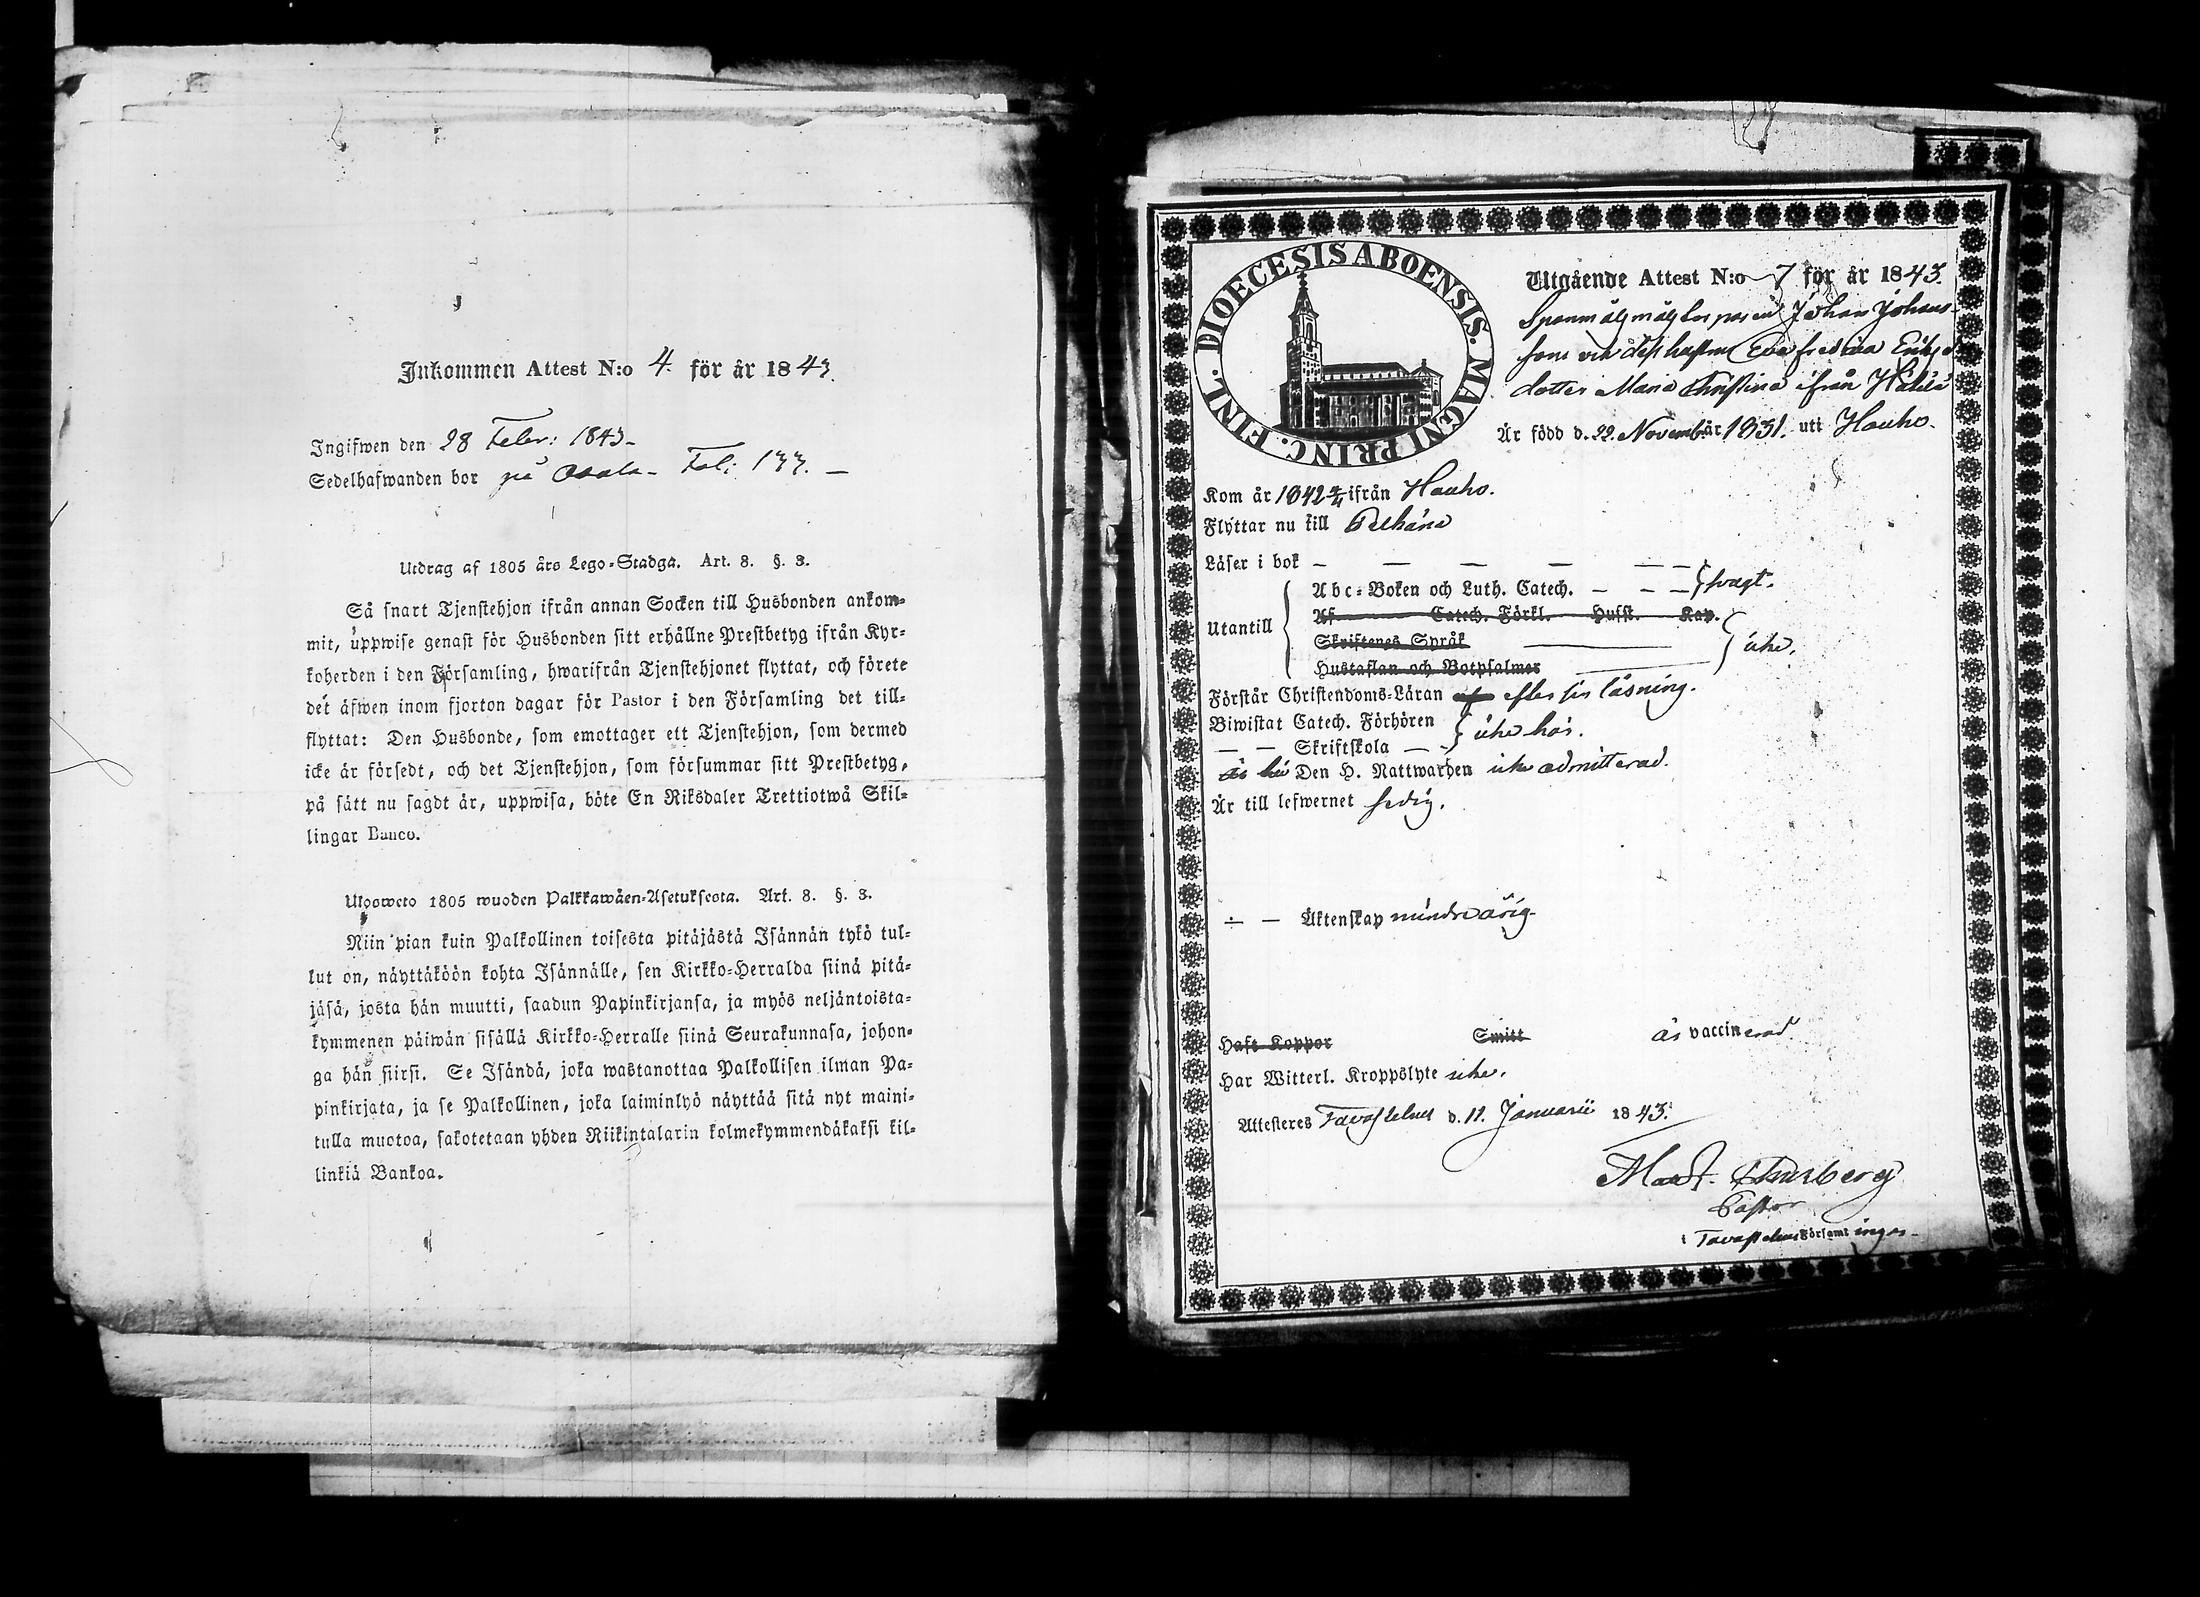 Inkommen Attest N:o 4. för år 1843.
Ingifwen den 28 Febr: 1843.
Sedelhafwanden bor på Fol: 177.
Utdrag af 1805 års Lego-Stadga. Art. 8. §. 3.
Så snart Tjenstehjon ifrån annan Socken till Husbonden ankom-
mit, uppwise genast för Husbonden sitt erhållne Prestbetyg ifrån Kyr-
koherden i den Församling, hwarifrån Tjenstehjonet flyttat, och förete
det äfwen inom fjorton dagar för Pastor i den Församling det till-
flyttat: Den Husbonde, som emottager ett Tjenstehjon, som dermed
icke är försedt, och det Tjenstehjon, som försummar sitt Prestbetyg,
på sätt nu sagdt är, uppwisa, böte En Riksdaler Trettiotwå Skil-
lingar Banco.
Ulosweto 1805 wuoden Palkkawäen-Asetuksesta. Art. 8. §. 3.
Niin pian kuin Palkollinen toisesta pitäjästä Isännän tykö tul-
lut on, näyttäköön kohta Isännälle, sen Kirkko-Herralda siinä pitä-
jäsä, josta hän muutti, saadun Papinkirjansa, ja myös neljäntoista-
kymmenen päiwän sisällä Kirkko-Herralle siinä Seurakunnasa, johon-
ga hän siirsi. Se Isändä, joka wastanottaa Palkollisen ilman Pa-
pinkirjata, ja se Palkollinen, joka laiminlyö näyttää sitä nyt maini-
tulla muotoa, sakotetaan yhden Riikintalarin kolmekymmendäkaksi kil-
linkiä Bankoa.
DIOECESIS ABOENSIS. MAGNI PRINC. FINL.
Utgående Attest N:o 7 för år 1843.
Johan Johans-
sons och dess hustru Eva Fredrica Eriks
dotter Maria Christina ifrån
Är född d. 22. Novemb år 1831. uti Hauho.
Kom år 1842 ifrån Hauho.
Flyttar nu till Pelkäne
Läser i bok
Abc-Boken och Luth. Catech. svagt.
Utantill
Af Catech. Förkl. Hufst. Kap.
Skriftenes Språk icke.
Hustaflan och Botpsalmer
Förstår Christendoms-Läran af efter sin läsning.
Biwistat Catech. Förhören
icke här.
Skriftskola
Den H. Nattwarden icke admitterad.
Är till lefwernet sedig.
Äktenskap minderårig.
Haft Koppor Smitt är vaccinerad
Har Witterl. Kroppslyte icke.
Attesteres Tavastehus d. 11. Januarii 1843.
Pastor
i Tavastehus Församlingar